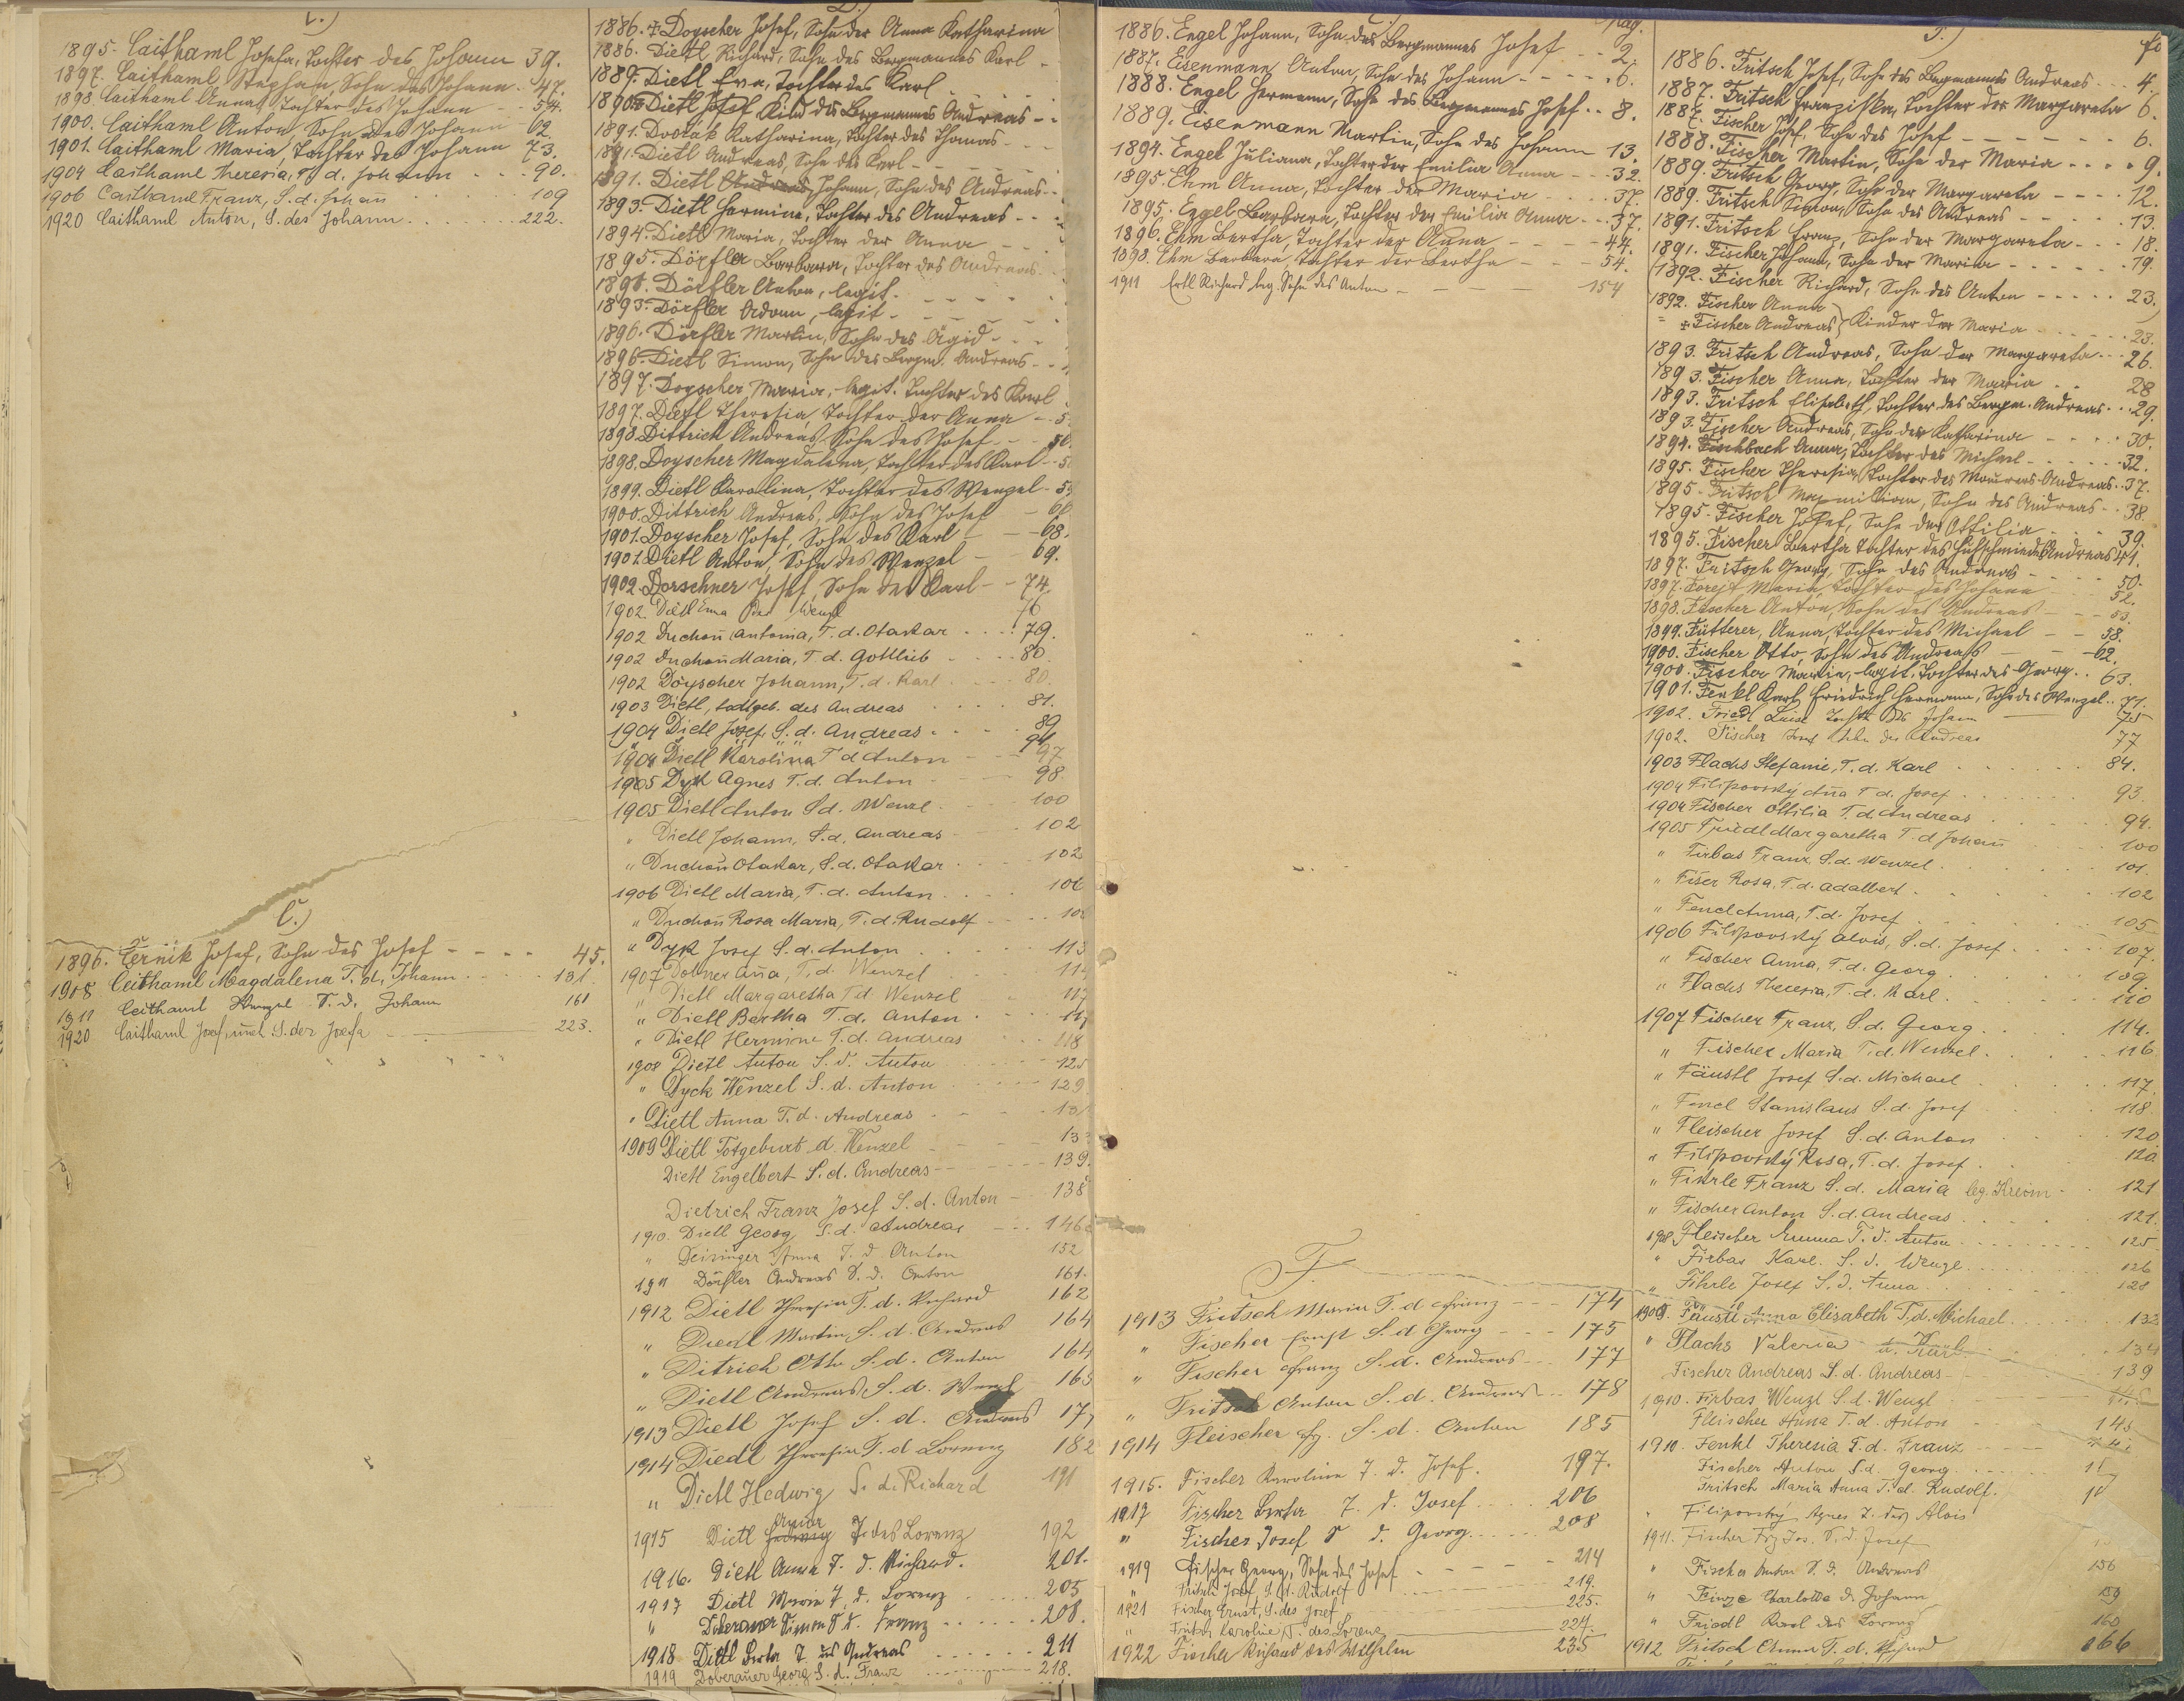 C.)
1895. Caithaml Josefa, Tochter des Johann 39.
1897. Caithaml Stephan, Sohn des Johann - 47.
1898. Caithaml Anna, Tochter des Johann - - 54.
1900. Caithaml Anton, Sohn des Johann - 62.
1901. Caithaml Maria, Tochter des Johann 73.
1904 Caithaml Theresia, T. d. Johann - - - 90.
1906 Caithaml Franz, S. d. Johan 109
1920 Caithaml Anton, S. des Johann. . . . . . 222.
C.)
1896. Černik Josef, Sohn des Josef - - - - 45.
1908 Ceithaml Magdalena T. d. Johann . . . . 131.
1911 Ceithaml Wenzel S. d. Johann 161
1920 Caithaml Josef, unel. S. der Josefa 223.
D.)
1886. ‡ Doyscher Josef, Sohn der Anna Katharina
1886. Dietl Richard, Sohn des Bergmannes Karl -
1889. Dietl Eva, Tochter des Karl
1890. Dietl Josef Kind des Bergmannes Andreas - -
1891. Dvořák Katharina, Tochter des Thomas - - -
1891. Dietl Andreas, Sohn des Karl - -
1891. Dietl Andreas, Johann, Sohn des Andreas - -
1893. Dietl Hermine, Tochter des Andreas - - -
1894. Dietl Maria, Tochter der Anna - - -
1895. Dörfler Barbara, Tochter des Andreas.
Dörfler Anton, legit. - - - -
1893. Dörfler Adam, legit - - - -
1896. Dörfler Martin, Sohn des Ägid - - -
1896. Dietl Simon, Sohn des Bergm. Andreas - -
1897. Doyscher Maria, legit. Tochter des Karl
1897. Dietl Theresia, Tochter der Anna - - 5
1898. Dittrich Andreas, Sohn des Josef - - 50.
1898. Doyscher Magdalena, Tochter des Karl - - 5
1899. Dietl Karolina, Tochter des Wenzel - 5
1900. Dittrich Andreas, Sohn des Josef - 6
1901. Doyscher Josef, Sohn des Karl - - 68.
1901. Dietl Anton, Sohn des Wenzel - 69.
1902. Dorschner Josef, Sohn des Karl - - 74.
1902 Dietl Emma des Wenzl 76
1902 Duchoň Antonia, T. d. Otakar . . . . 79.
1902 Duchoň Maria, T. d. Gottlieb - . . . 80.
1902 Doyscher Johann, T. d. Karl . . . . 80.
1903 Dietl, todtgeb. des Andreas . . . . 81.
1904 Dietl Josef, S. d. Andreas . . . . 89
1904 Dietl Karolina T d Anton - - - 97
1905 Dyk Agnes T. d. Anton - - - 98
1905 Dietl Anton S d. Wenzl . - - - 100
" Dietl Johann, S. d. Andreas - - . . 102
" Duchoň Otakar, S. d. Otakar . . . . 102
1906 Dietl Maria, T. d. Anton . . . . 106
" Duchoň Rosa Maria, T. d. Rudolf - - - . 10
" Dyk Josef S. d. Anton . . . . 113
1907 Dobner Ana, T. d. Wenzel 114
" Dietl Margaretha T d. Wenzel 117
" Dietl Bertha T. d. Anton . . . . 117
" Dietl Hermine T. d. Andreas . . . 118
1908 Dietl Anton S. d. Anton 125
" Dyck Wenzel S. d. Anton . - - - - 129
" Dietl Anna T. d. Andreas - - - 13
1909 Dietl Totgeburt d. Wenzel - - - 13
Dietl Engelbert S. d. Andreas - - - - 139.
Dietrich Franz Josef S. d. Anton - 138
1910. Dietl Georg S. d. Andreas - - - 146
" Deisinger Anna T. d. Anton 152
1911 Dörfler Andreas S. d. Anton 161.
1912 Dietl Theresia T. d. Richard 162
" Diedl Martin, S. d. Andreas 164
" Ditrich Otto S. d. Anton 164
" Dietl Andreas S. d. Wenzl 165
1913 Dietl Josef S. d. Andreas 17
1914 Diedl Theresia T. d Lorenz 182
" Dietl Hedwig S. d. Richard 191
1915 Dietl Hedwig T. des Lorenz 192
1916. Dietl Anna T. d. Richard. 201.
1917 Dietl Maria T. d. Lorenz . . . . 205
" Doberauer Simon S d. Franz . . . . . . 208.
1918 Dietl Berta T des Andreas . . . . . . 211
1919 Doberauer Georg S. d. Franz 218.
Pag.
1886. Engel Johann, Sohn des Bergmannes Josef - - 2.
1887. Eisenmann Anton, Sohn des Johann - - - - . 6.
1888. Engel Hermann, Sohn des Bergmannes Josef . . 8.
1889. Eisenmann Martin, Sohn des Johann 13.
1894. Engel Juliana, Tochter der Emilia Anna - - - 32.
1895. Ehm Anna, Tochter der Maria - - - - 37.
1895. Engel Barbara, Tochter der Emilia Anna - - . 37.
1896. Ehm Bertha, Tochter der Anna - - - - 44.
1898. Ehm Barbara Tochter der Bertha - - 54.
1911 Ertl Richard leg. Sohn des Anton - - - - 154
F.
1913 Fritsch Maria T. d Franz - - - 174
" Fischer Ernst S. d Georg - - - 175
" Fischer Franz S. d. Andreas - - - 177
" Fritsch Anton S. d. Andreas - - 178
1914 Fleischer Fz. S. d. Anton 185
1915. Fischer Karoline T. d. Josef. 197.
1917 Fischer Berta T. d. Josef . . . . 206
" Fischer Josef S d. Georg . . . . . . 208
1919 Fischer Georg, Sohn des Josef - - - - 214
" Fritsch Josef, S. d. Rudolf 219.
1921 Fischer Ernst, S. des Josef 225.
" Fritsch Karoline, T. des Lorenz 227.
1922 Fischer Richard des Wilhelm 235
F.)
1886. Fritsch Josef, Sohn des Bergmannes Andreas - - - 4.
1887. Fritsch Franziska, Tochter der Margareta 6.
1887. Fischer Josef, Sohn des Josef - - - - - - 6.
1888. Fischer Martin, Sohn der Maria - - - - 9.
1889. Fritsch Georg, Sohn der Margareta - - - - 12.
1889. Fritsch Simon, Sohn des Andreas - - - - - 13.
1891. Fritsch Franz, Sohn der Margareta - - - 18.
1891. Fischer Johann, Sohn der Maria - - - - - - 19.
1892. Fischer Richard, Sohn des Anton - - - - - 23.
1892. Fischer Anna
" ‡ Fischer Andreas } Kinder der Maria - - - - - 23.
1893. Fritsch Andreas, Sohn der Margareta - - - 26.
1893. Fischer Anna, Tochter der Maria . . 28
1893. Fritsch Elisabeth, Tochter des Bergm. Andreas . . . 29.
1893. Fischer Andreas, Sohn der Katharina - - - - 30.
1894. Fischbach Anna, Tochter des Michael - - - - - - 32.
1895. Fischer Theresia, Tochter des Maurers Andreas . . 37.
1895. Fritsch Maximilian, Sohn des Andreas - - 38.
1895. Fischer Josef, Sohn der Ottilia - - - 39.
1895. Fischer Bertha Tochter des Hufschmieds Andreas 41.
1897. Fritsch Georg, Sohn des Andreas - - - - 50.
1897. Forejt Maria, Tochter des Johann - - 52.
1898. Fischer Anton, Sohn des Andreas - - - 53.
1899. Fütterer, Anna, Tochter des Michael - - 58.
1900. Fischer Otto, Sohn des Andreas - - 62.
1900. Fischer Maria, legit. Tochter des Georg . . 63.
1901. Fenkl Karl Friedrich Hermann, Sohn des Wenzel . . 71.
1902. Friedl Luise Tochter des Johann 75
1902. Fischer Josef Sohn des Andreas 77
1903 Flachs Stefanie, T. d. Karl . . . . . . 84.
1904 Filipovský Ana T d. Josef . . . . . . . 93.
1904 Fischer Ottilia T. d. Andreas . . . . . 94.
1905 Friedl Margaretha T. d Johann 100
" Firbas Franz S. d. Wenzel . . . . . . . 101.
" Fišer Rosa, T. d. Adalbert . . . . . . 102
" Fencl Anna, T. d. Josef . . . . . . . 105
1906 Filipovský Alois, S. d. Josef . . . . . 107.
" Fischer Anna, T. d. Georg . . . . . . . 109.
" Flachs Theresia, T. d. Karl . . . . . . 110
1907 Fischer Franz, S. d. Georg . . . . . 114.
" Fischer Maria T. d. Wenzel . . . . . 116.
" Fäustl Josef S. d. Michael . . . . . 117.
" Fencl Stanislaus S. d. Josef . . . . 118.
" Fleischer Josef S. d. Anton . . . . . 120
" Filipovský Rosa, T. d. Josef . . . . 120
" Fihrle Franz S. d. Maria 121
" Fischer Anton S. d. Andreas . . . . . 121.
1908 Fleischer Emma T. d. Anton . . . . . . 125
" Firbas Karl. S. d. Wenzl . . . . . . 126
" Fihrle Josef S. d. Anna 128
1909. Fäustl Anna Elisabeth T. d. Michael . . . . . . 132
" Flachs Valeria d. Karl 134
Fischer Andreas S. d. Andreas - - 139
1910. Firbas Wenzl S. d. Wenzl
Fleischer Anna T. d. Anton 145
1910. Fenkl Theresia T. d. Franz
Fischer Anton S. d. Georg
Fritsch Maria Anna T. d. Rudolf.
Filipovský Agnes T. des Alois
1911. Fischer Fz Jos. S. d. Josef
" Fischer Anton S. d. Andreas 156
" Charlotte d. Johann 159
" Friedl Karl des Lorenz 160
1912 Fritsch Anna T. d. Richard 166